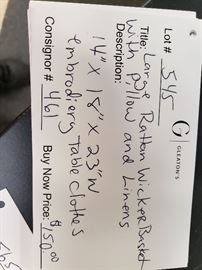 Lot # 545
G
GLEATON'S
Title: Large Rattan Wicker Basket
with pillow and Linens
Description:
14" X 18" X 23" W
embrodiery Table Clothes
Consignor # 461 Buy Now Price: $150.00
545